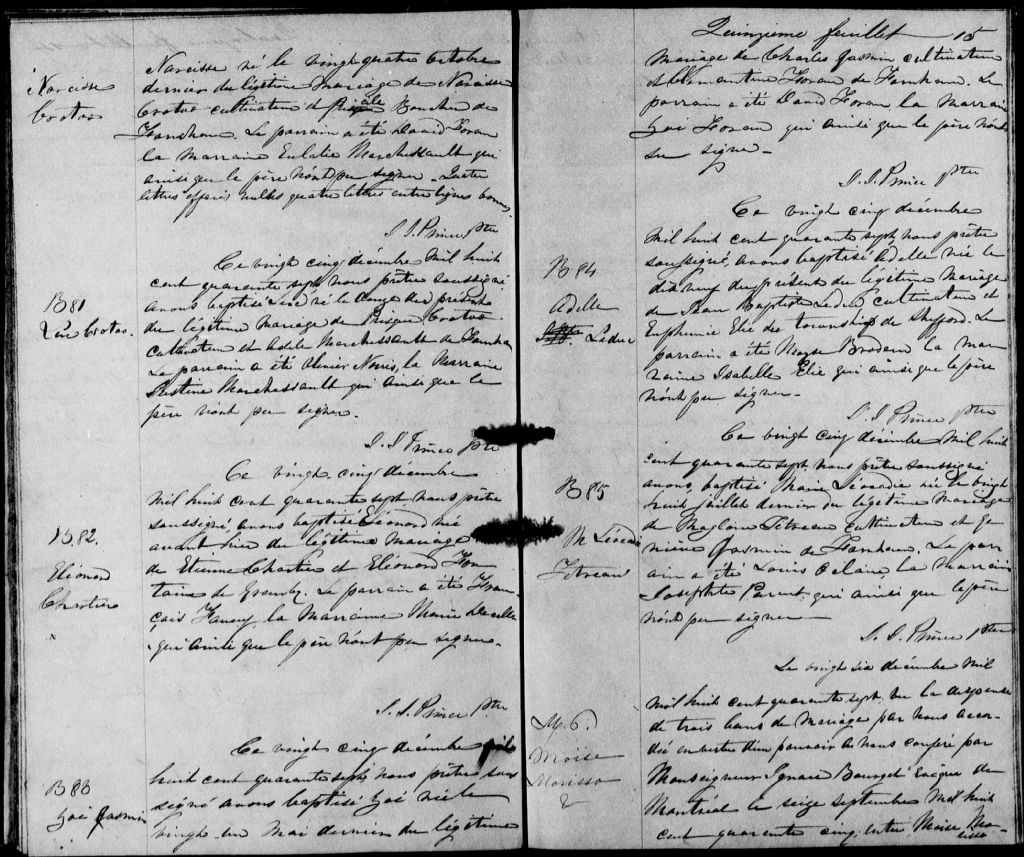 Narcisse
Crotos
Narcisse né le vingt quatre Octobre
dernier du légitime Mariage de Narcisse
Crotos cultivateur et Boucher de
Farnham. Le parrain a été David Foran
la Marraine Eulalie Marchessault qui
ainsi que le père n'ont pu signer. Quatre
lettres effacés nulles quatre lettres entre lignes bonnes.
J. J. Prince Ptre
B 81
Crotos
Ce vingt cinq décembre Mil huit
cent quarante sept nous prêtre soussigné
avons baptisé né le douze du présent
du légitime mariage de Prisque Crotos
cultivateur et Adele Marchessault de Farnham
Le parrain a été Olivier Norris, la Marraine
Marchessault qui ainsi que le
père n'ont pu signer.
J. J. Prince Ptre
B 82.
Eléonord
Chartier
Ce vingt cinq décembre
Mil huit cent quarante sept nous prêtre
soussigné avons baptisé Eléonord né
avant hier du légitime mariage
de Etienne Chartier et Eléonord Fon
taine de Granby. Le parrain a été Fran
çois la Marraine Marie
qui ainsi que le père n'ont pu signer.
J. J. Prince Ptre
B 83
Zoé Jasmin
Ce vingt cinq décembre mil
huit cent quarante sept nous prêtre sous
signé avons baptisé Zoé née le
vingt un Mai dernier du légitime
Quinzième feuillet 15
Mariage de Charles Jasmin cultivateur
et Clémentine Foran de Farnham. Le
parrain a été David Foran la Marraine
Zoé Foran qui ainsi que le père n'ont
su signer -
J. J. Prince Ptre
B 84
Adelle
Leduc
Ce vingt cinq décembre
Mil huit cent quarante sept, nous prêtre
soussigné, avons baptisé Adelle née le
dix neuf du présent du légitime Mariage
de Jean Baptiste Leduc cultivateur et
Euphémie Elie des township de Shefford. Le
parrain a été Brodeur la mar
raine Isabelle Elie qui ainsi que le père
n'ont pu signer -
J. J. Prince Ptre
B 85
M Léocadie
Tétreau
Ce vingt cinq décembre Mil huit
cent quarante sept nous prêtre soussigné
avons baptisé Marie Léocadie née le vingt
huit juillet dernier du légitime Mariage
de Magloire Tétreau cultivateur et Ge
neviève Jasmin de Farnham. Le par
ain a été Louis la Marraine
Josephte Parent qui ainsi que le père
n'ont pu signer -
J. J. Prince Ptre
M. 6.
Moïse
Morisso
&
Le vingt six décembre mil
Mil huit cent quarante sept vu la dispense
de trois bans de mariage par nous accor
dée en vertu d'un pouvoir à nous conféré par
Monseigneur Ignace Bourget Evêque de
Montréal le seize septembre Mil huit
cent quarante cinq, entre Moïse Mo-
risso